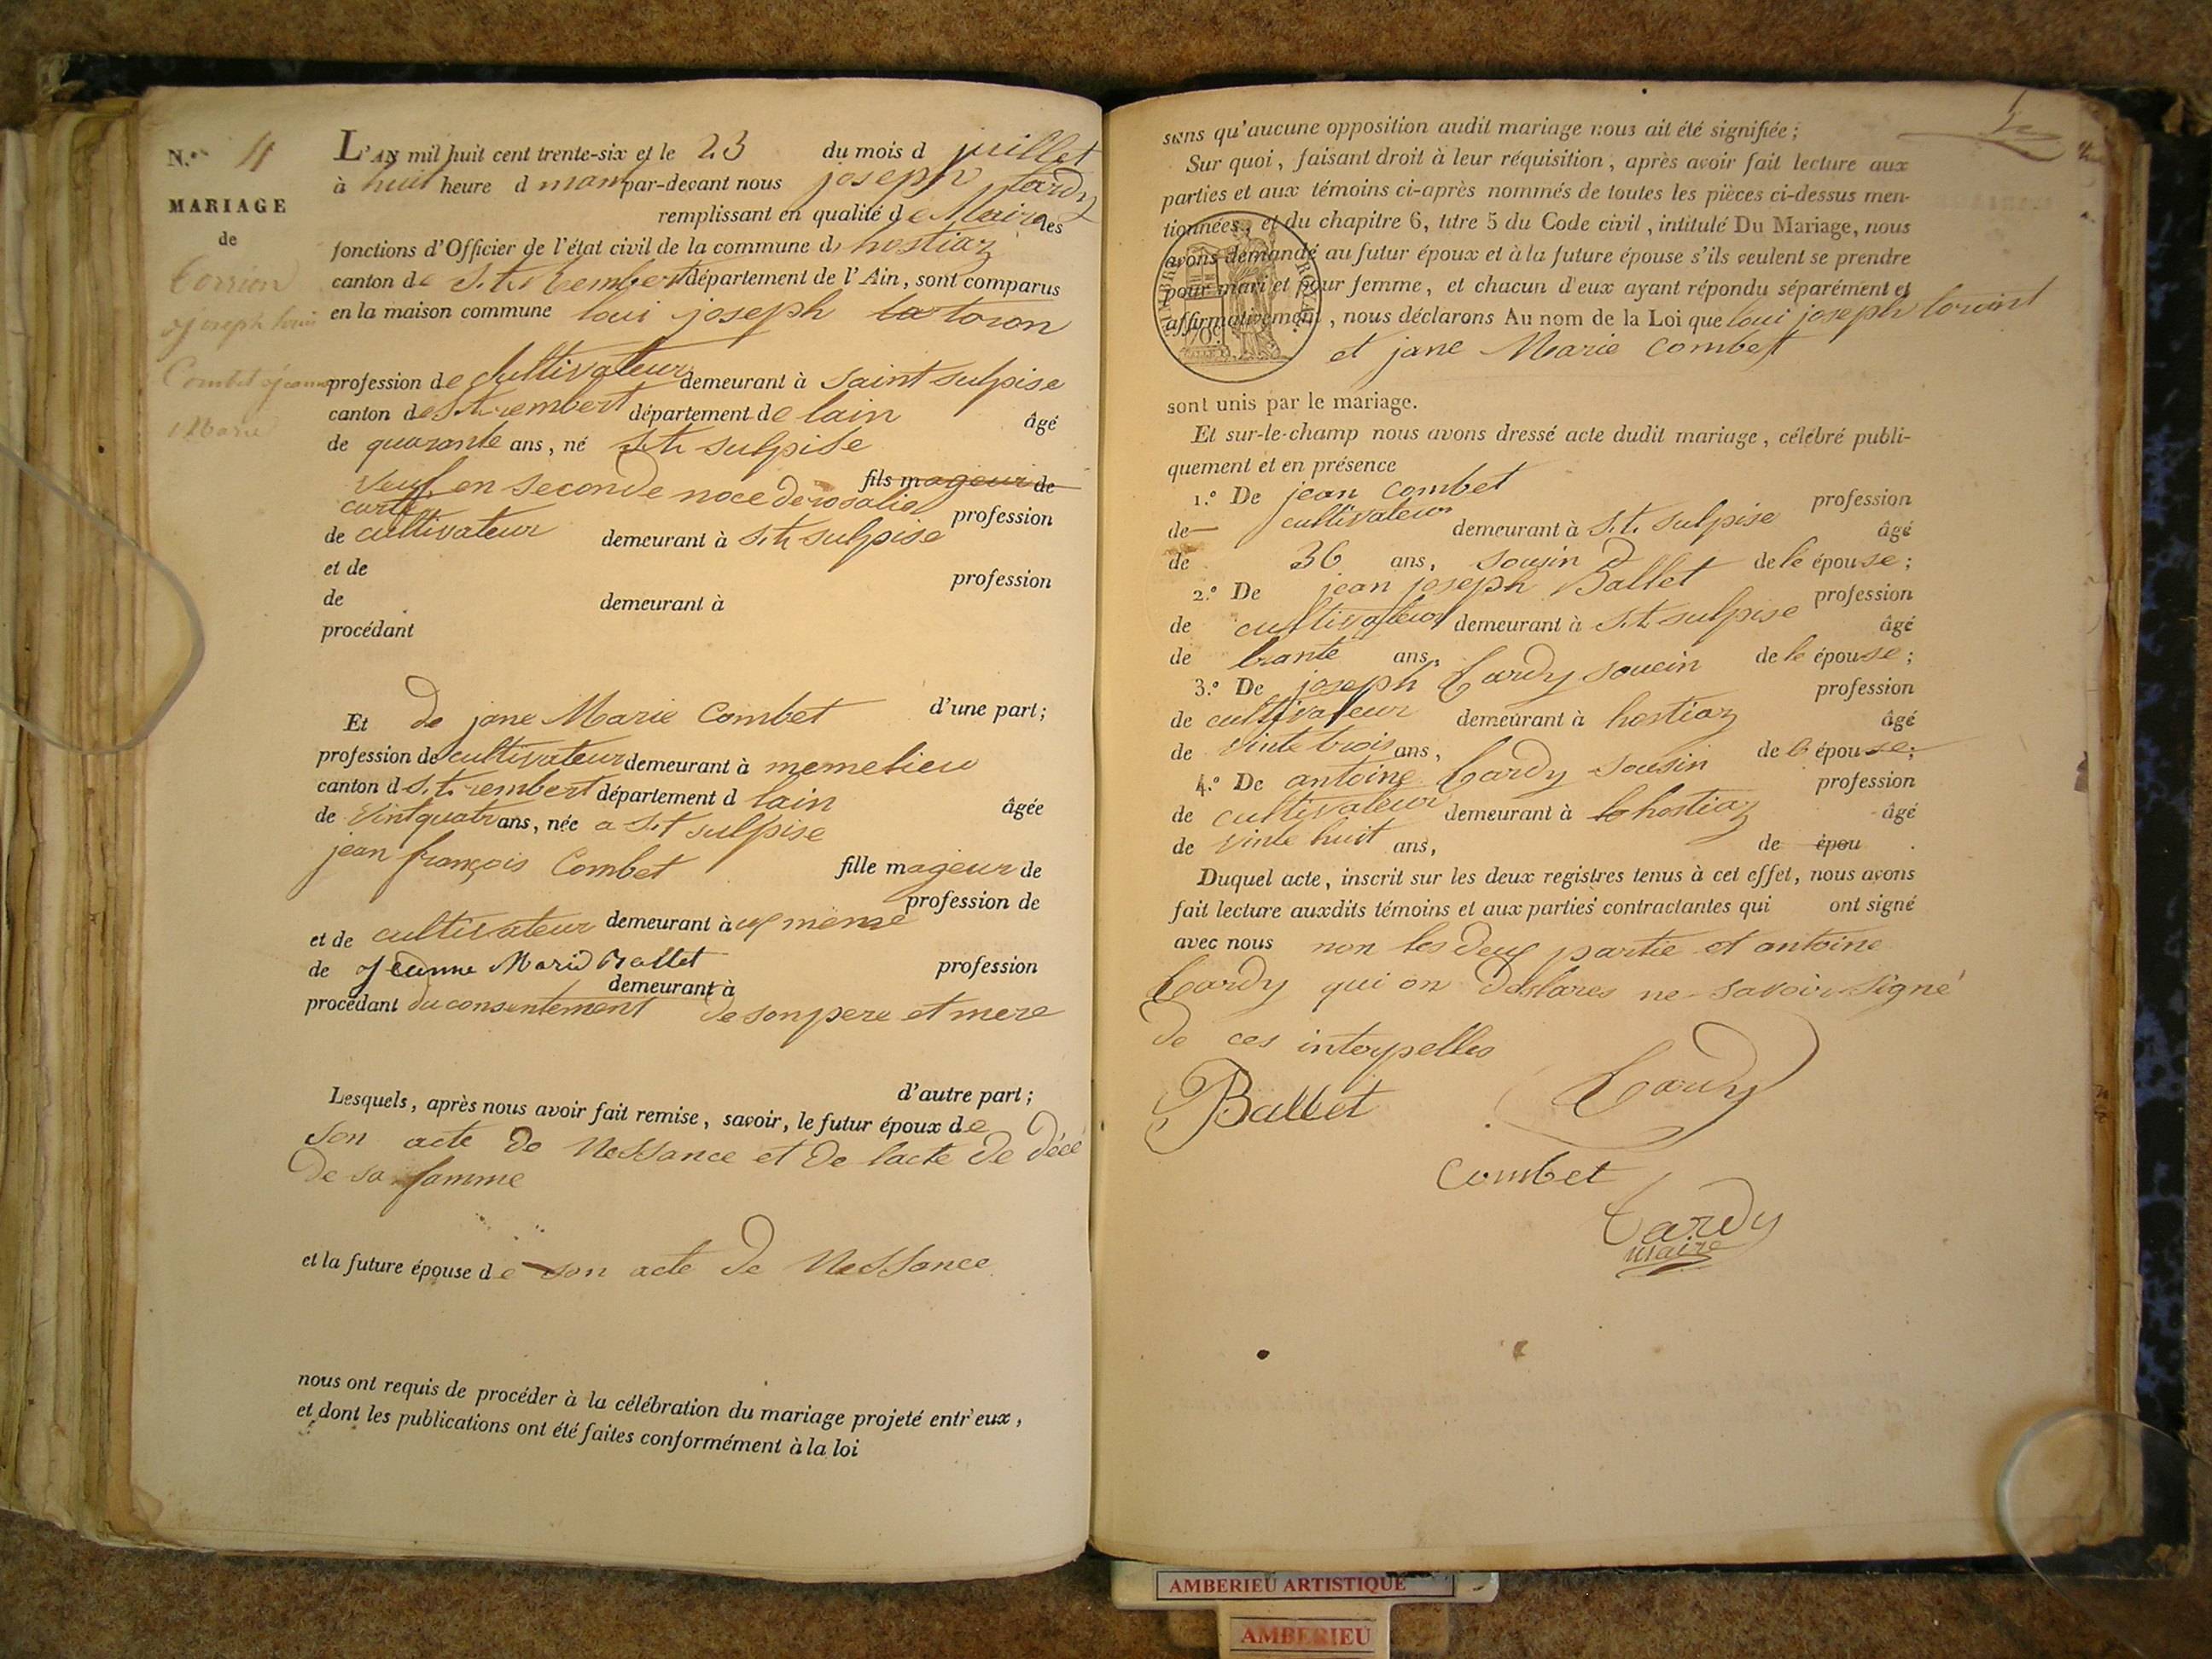 N.º 11
MARIAGE
de
Torrion
joseph louis
Combet jeanne
Marie
L'AN mil huit cent trente-six et le 23 du mois d juillet
à huit heure d matin par-devant nous joseph tardy
remplissant en qualité de Maire les
fonctions d'Officier de l'état civil de la commune d hostiaz
canton de S.t rembert département de l'Ain, sont comparus
en la maison commune loui joseph toron
profession de cultivateur demeurant à saint sulpise
canton de S.t rembert département de lain âgé
de quarante ans, né S.t sulpise
fils mageur de
veuf en seconde noce de rosalie
profession
de cultivateur demeurant à S.t sulpise
et de profession
de demeurant à
procédant
d'une part;
Et de jane Marie Combet
profession de cultivateur demeurant à meme lieu
canton d S.t rembert département d lain âgée
de vint quatr ans, née a S.t sulpise
fille mageur de
jean françois Combet
profession de
et de cultivateur demeurant à meme
de Jeanne Marie Ballet profession
demeurant à
procédant du consentement de son pere et mere
d'autre part;
Lesquels, après nous avoir fait remise, savoir, le futur époux de
son acte de Nessance et de lacte de décé
de sa famme
et la future épouse de son acte de Nessance
nous ont requis de procéder à la célébration du mariage projeté entr'eux,
et dont les publications ont été faites conformément à la loi
sans qu'aucune opposition audit mariage nous ait été signifiée;
Sur quoi, faisant droit à leur réquisition, après avoir fait lecture aux
parties et aux témoins ci-après nommés de toutes les pièces ci-dessus men-
tionnées, et du chapitre 6, titre 5 du Code civil, intitulé Du Mariage, nous
avons demandé au futur époux et à la future épouse s'ils veulent se prendre
pour mari et pour femme, et chacun d'eux ayant répondu séparément et
affirmativement, nous déclarons Au nom de la Loi que loui joseph
et jane Marie Combet
sont unis par le mariage.
Et sur-le-champ nous avons dressé acte dudit mariage, célébré publi-
quement et en présence
1.º De jean Combet profession
de cultivateur demeurant à S.t. sulpise âgé
de 36 ans, sousin de lé épouse;
2.º De jean joseph Ballet profession
de cultivateur demeurant à S.t sulpise âgé
de trante ans, de lé épouse;
3.º De joseph tardy soucin profession
de cultivateur demeurant à hostiaz âgé
de vinte trois ans, de l épouse;
4.º De antoine tardy sousin profession
de cultivateur demeurant à hostiaz âgé
de vinte huit ans, de épou .
Duquel acte, inscrit sur les deux registres tenus à cet effet, nous avons
fait lecture auxdits témoins et aux parties contractantes qui ont signé
avec nous non les deux partie et antoine
tardy qui on déslares ne savoir signé
de ces interpelles
Ballet tardy
Combet
tardy
maire
AMBERIEU ARTISTIQUE
AMBERIEU